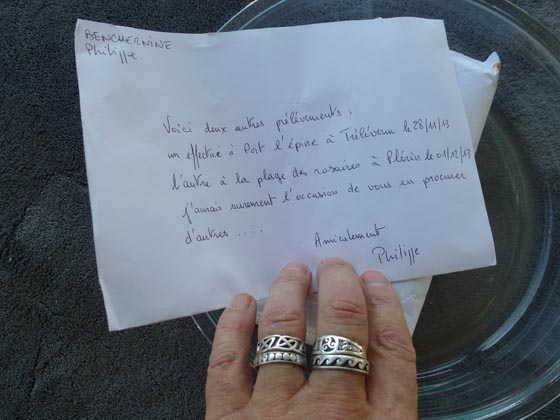 BENCHERNINE
Philippe
Voici deux autres prélèvements,
un effectué à Port l'épine à Trélévern le 28/11/13
l'autre à la plage des rosaires à Plérin le 01/12/13
j'aurais surement l'occasion de vous en procurer
d'autres ....
Amicalement
Philippe